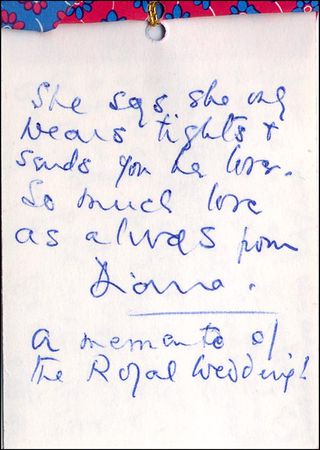 She says she only
wears tights &
sends you her love.
So much love
as always from
Diana.
a memento of
the Royal Wedding!